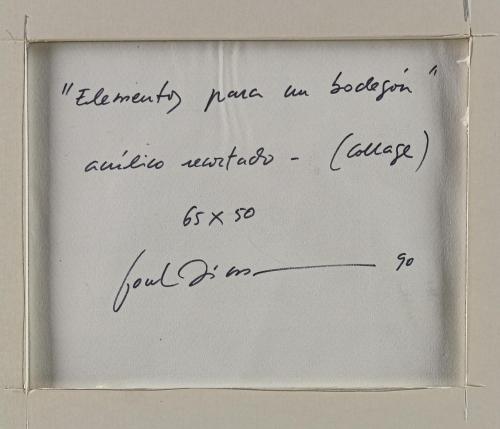 "Elementos para un bodegón"
acrílico recortado - (collage)
65 x 50
90